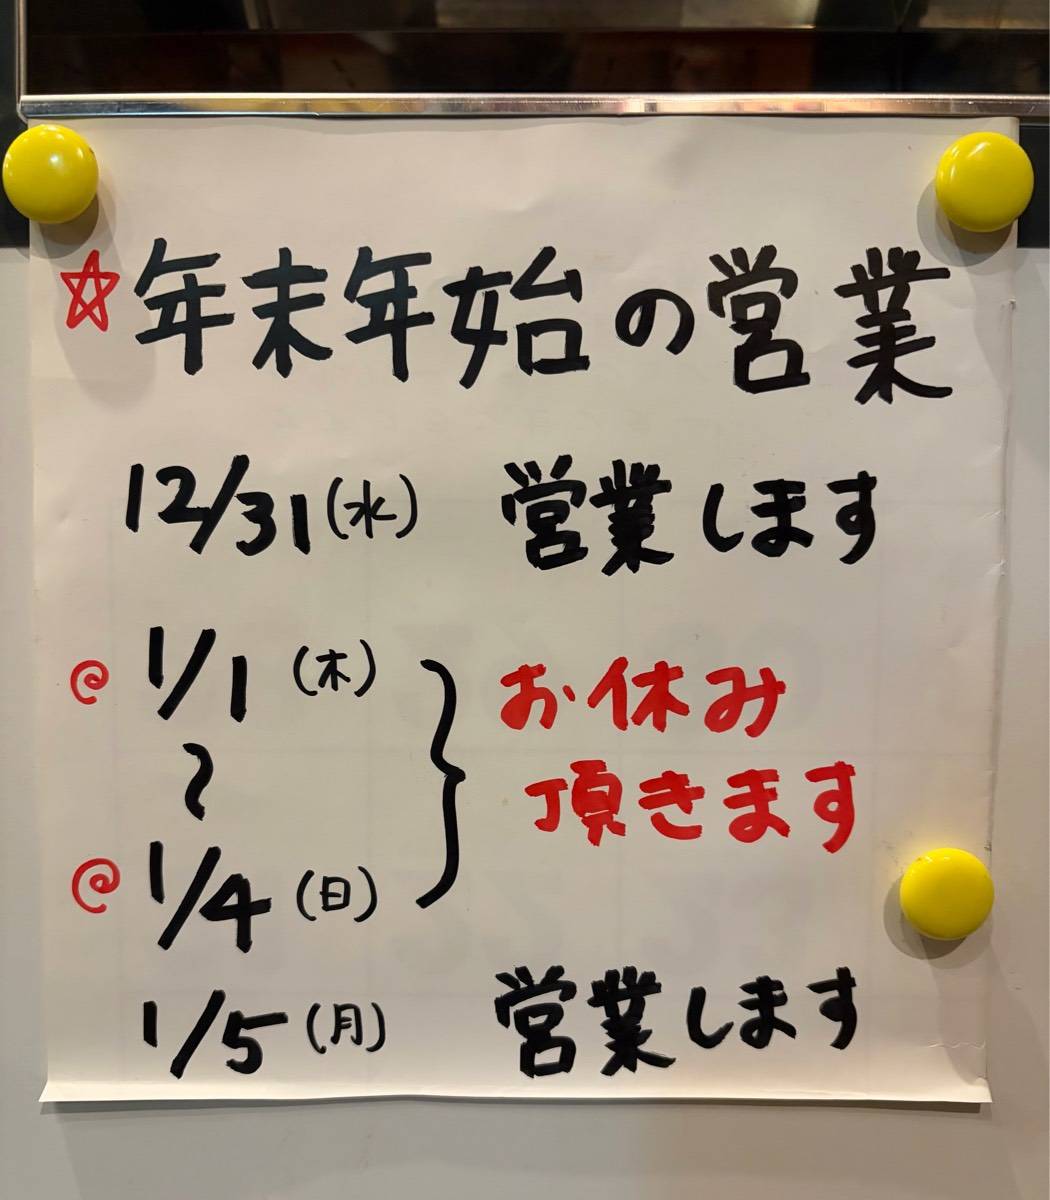 ☆年末年始の営業
12/31(水) 営業します
@ 1/1(木)
〜
@ 1/4(日)
お休み
頂きます
1/5(月) 営業します